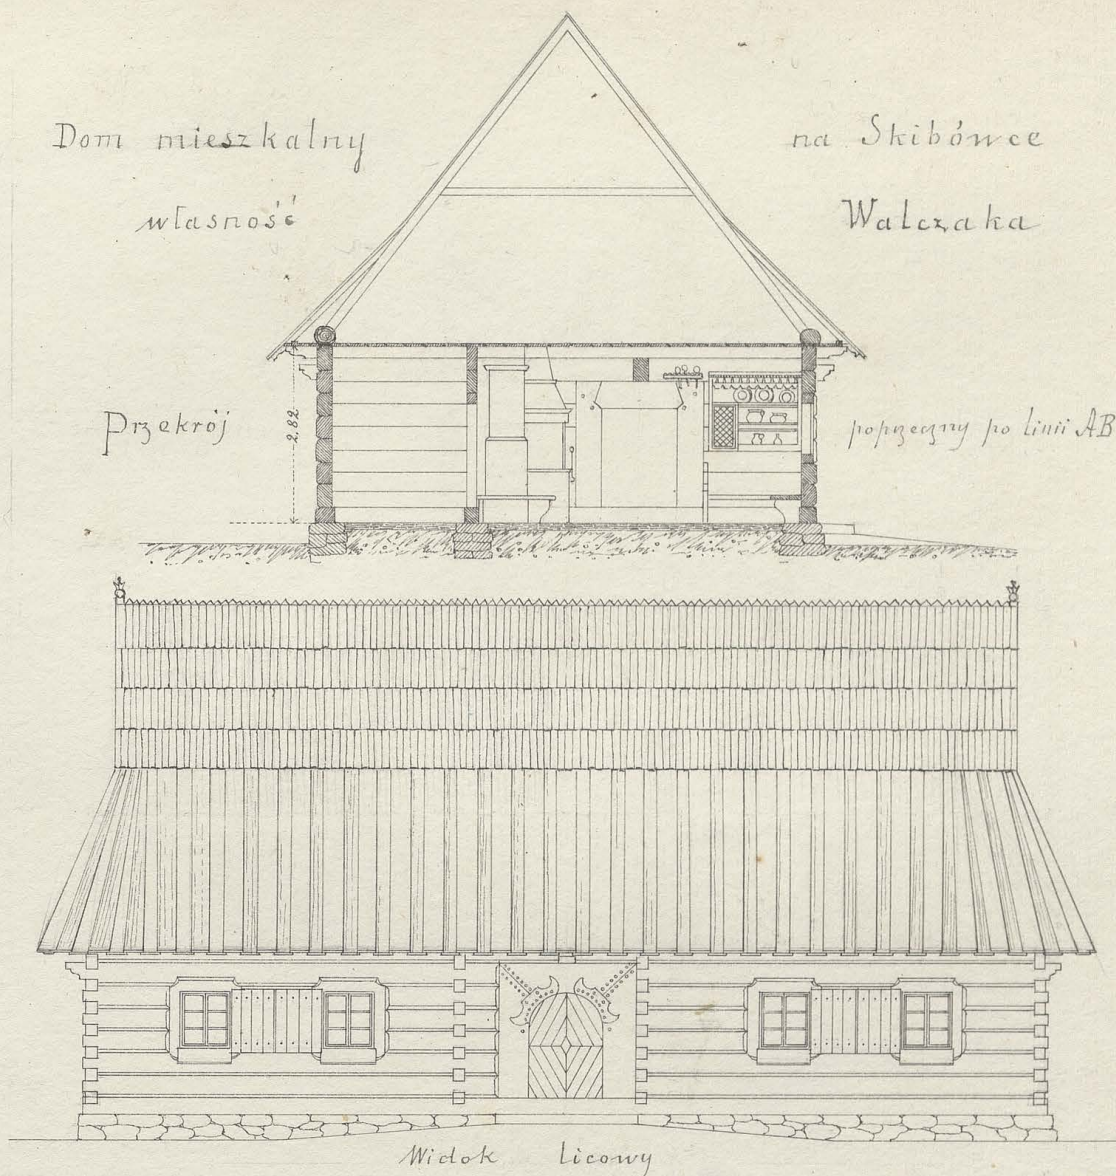 Dom mieszkalny na Skibówce
własność Walczaka
Przekrój poprzeczny po linii AB
2.82
Widok licowy